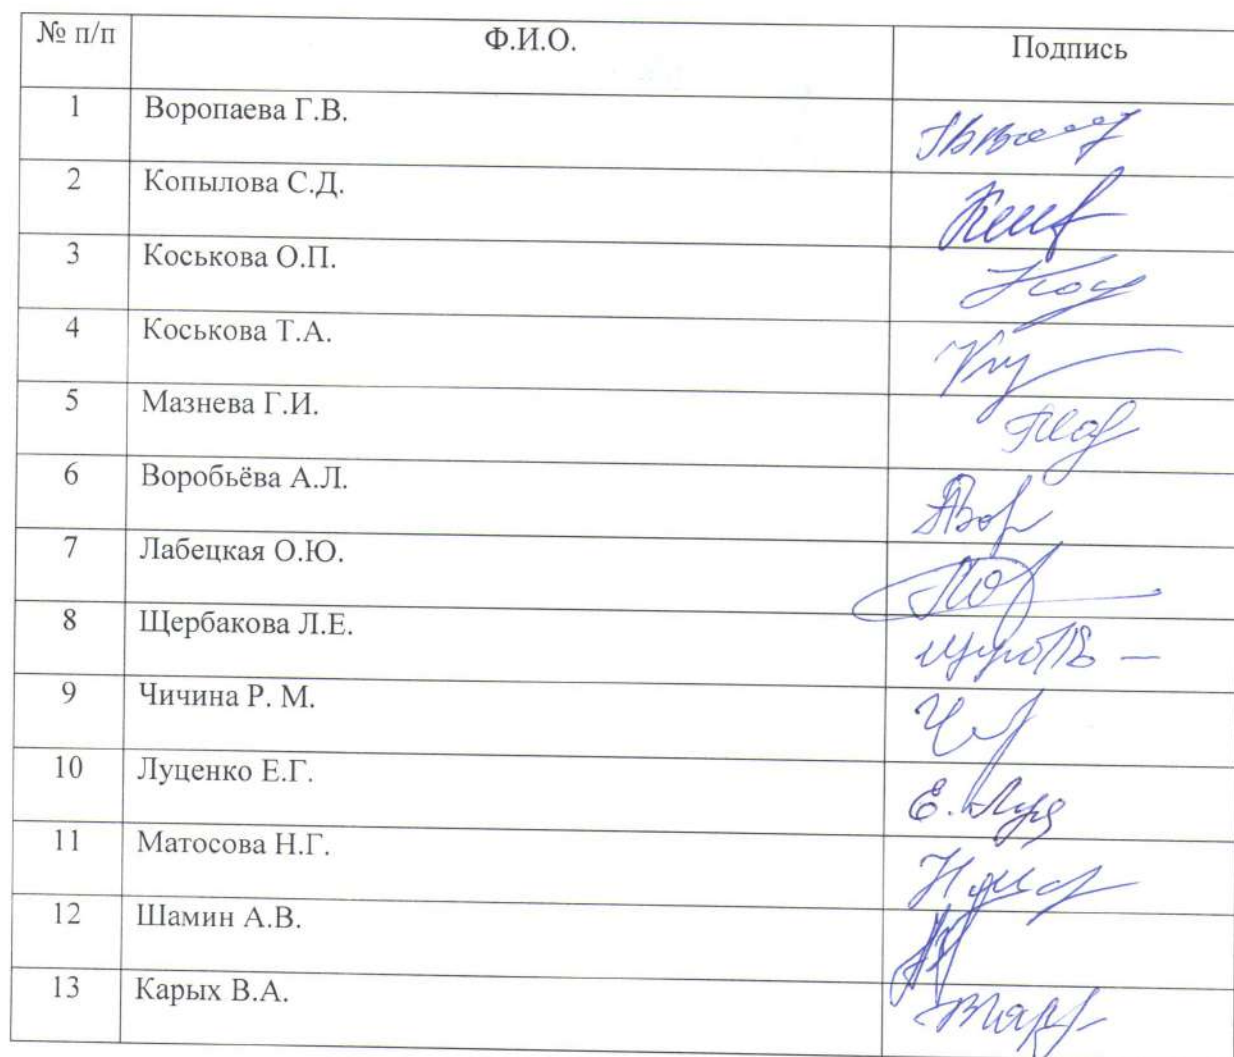 № п/п Ф.И.О. Подпись
1 Воропаева Г.В.
2 Копылова С.Д.
3 Коськова О.П.
4 Коськова Т.А.
5 Мазнева Г.И.
6 Воробьёва А.Л.
7 Лабецкая О.Ю.
8 Щербакова Л.Е.
9 Чичина Р. М.
10 Луценко Е.Г.
11 Матосова Н.Г.
12 Шамин А.В.
13 Карых В.А.